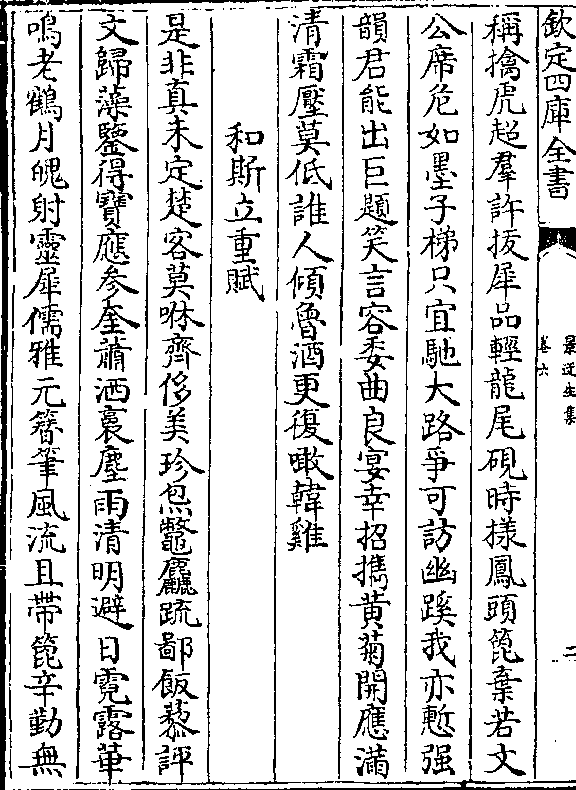 欽定四庫全書
景迂生集
卷六
二
稱擒虎超羣許拔犀品輕龍尾硯時樣鳳頭篦棄若文
公席危如墨子梯只宜馳大路爭可訪幽蹊我亦慙强
韻君能出巨題笑言容委曲良宴幸招攜黄菊開應滿
清霜壓莫低誰人傾魯酒更復噉韓雞
和斯立重賦
是非真未定楚客莫咻齊侈美珍炰鼈麤疏鄙飯藜評
文歸藻鑒得寶應参奎蕭洒裛塵雨清明避日霓露華
鳴老鶴月魄射靈犀儒雅元簪筆風流且帶箆辛勤無